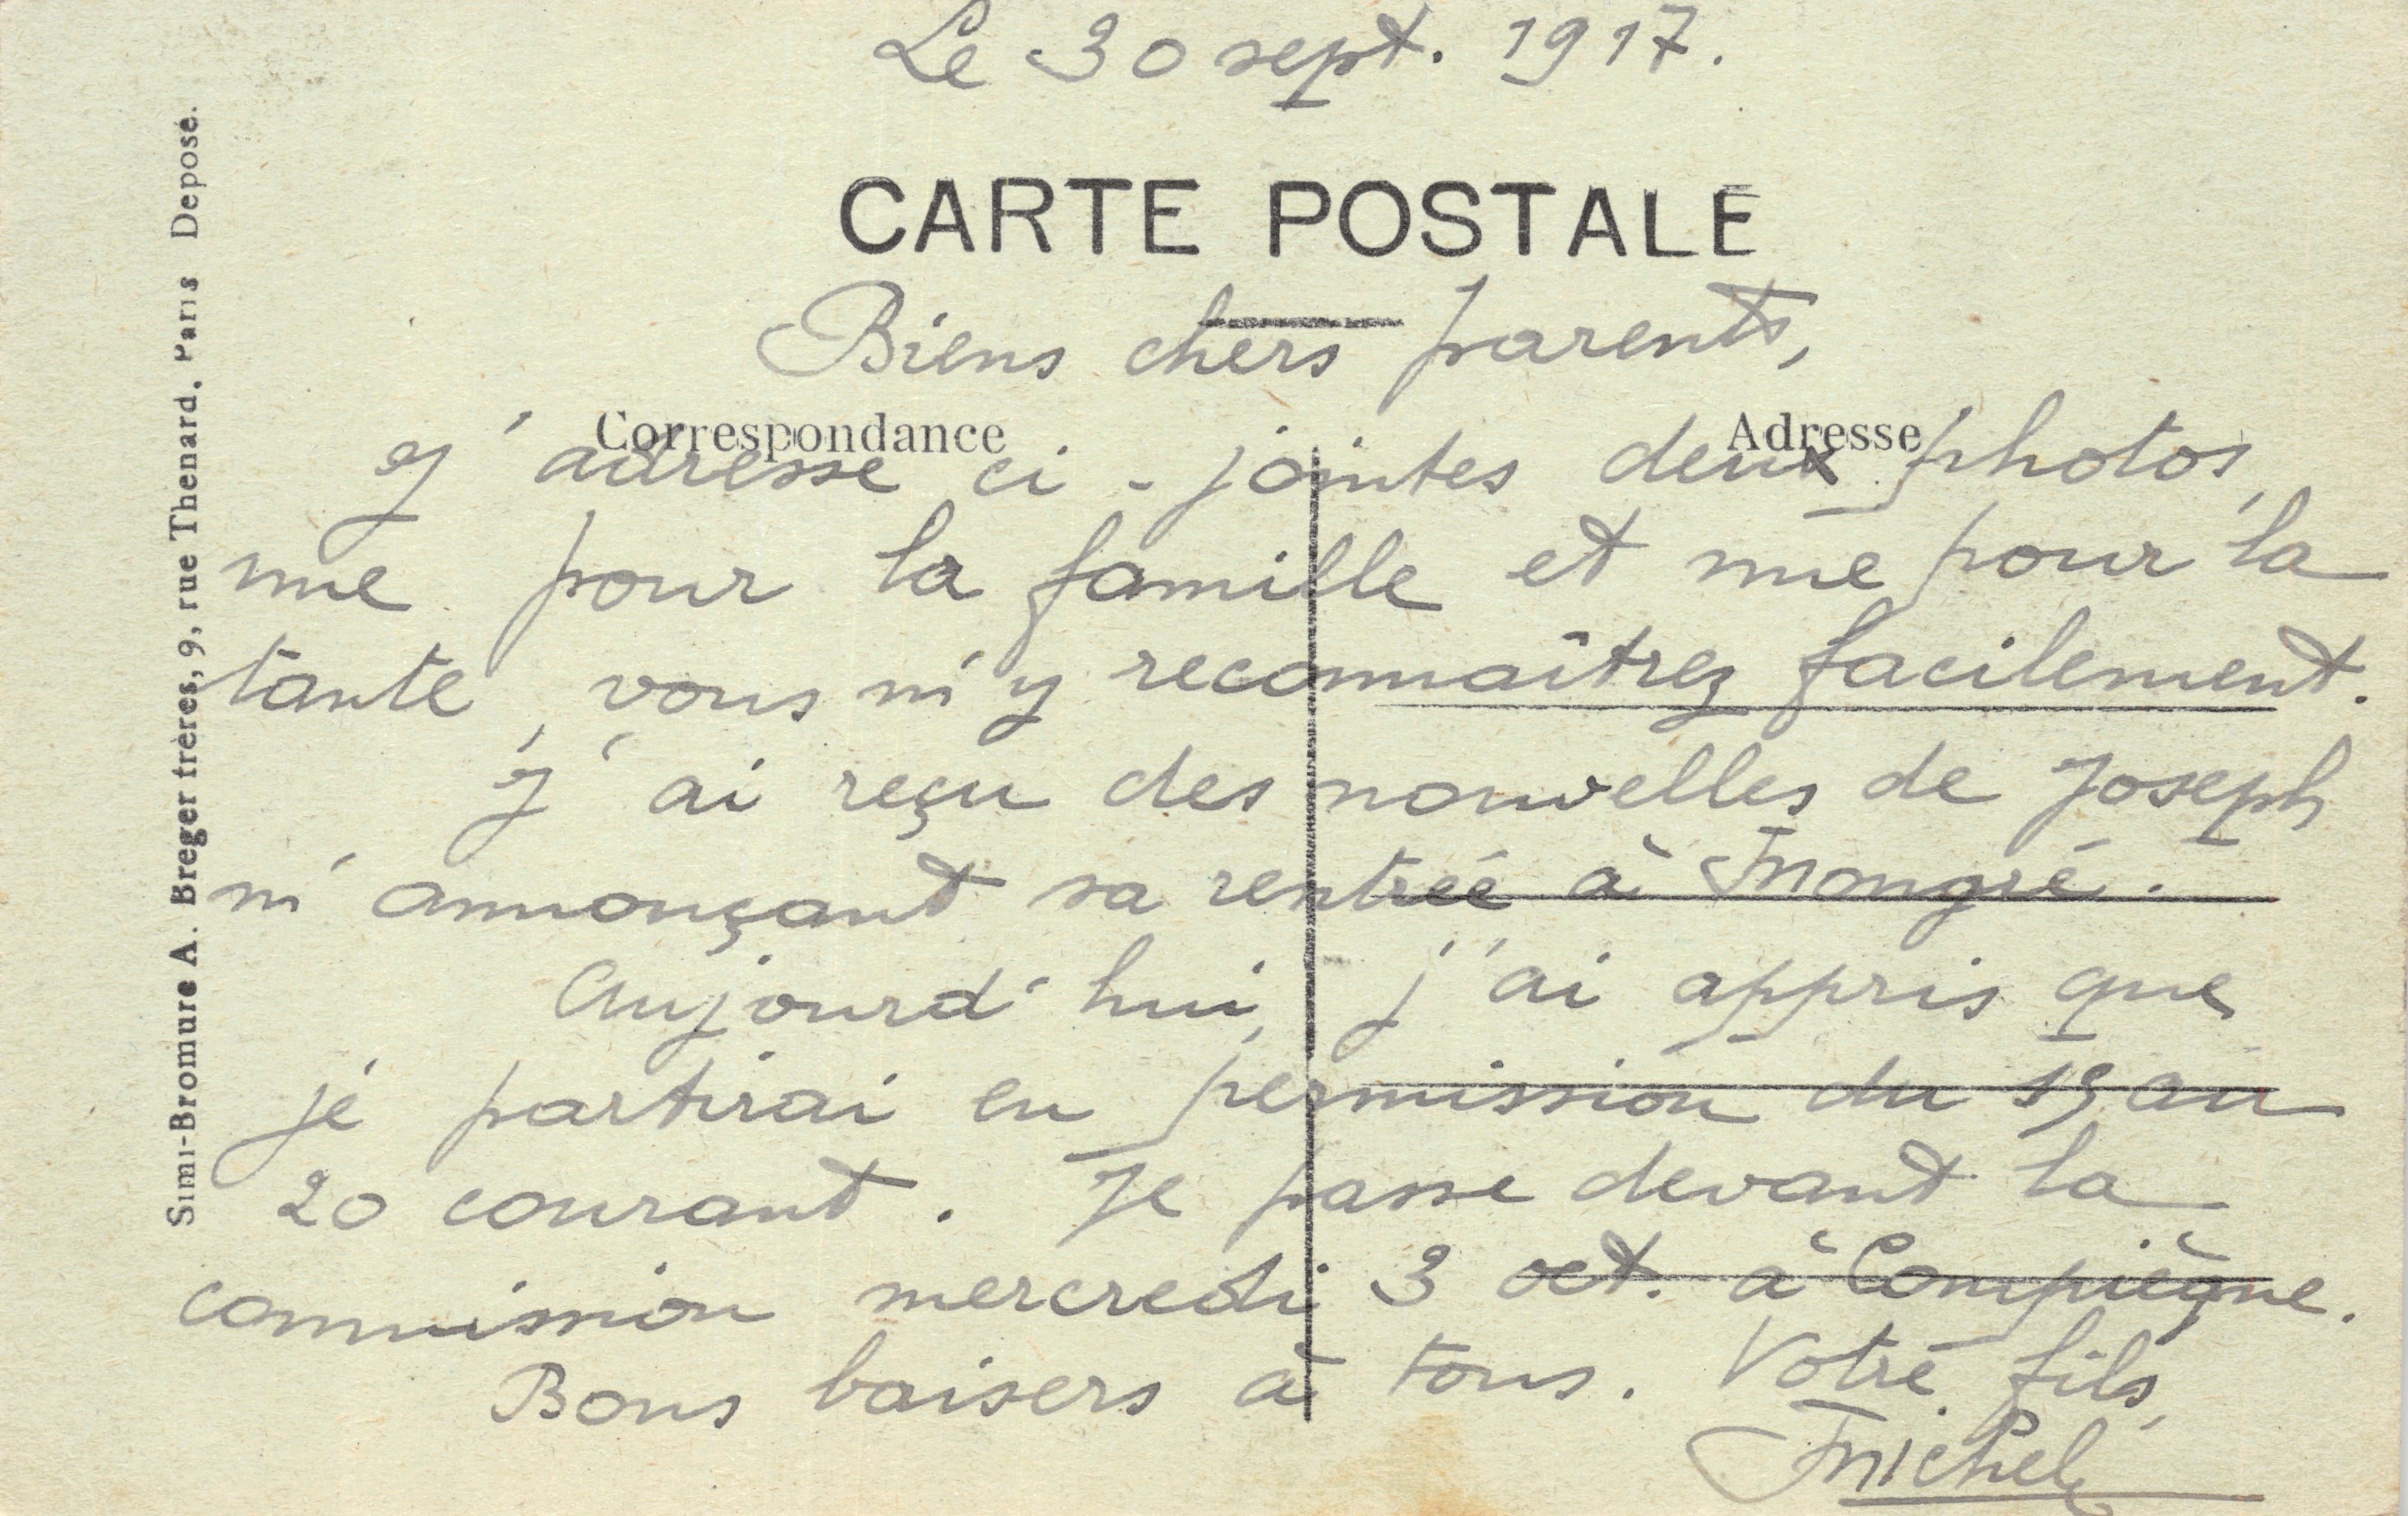 Le 30 sept. 1917.
CARTE POSTALE
Biens chers parents,
Correspondance
Adresse
J'adresse ci-jointes deux photos,
une pour la famille et une pour la
tante, vous m'y reconnaîtrez facilement.
J'ai reçu des nouvelles de Joseph
m'annonçant sa rentrée à Mongré.
Aujourd'hui, j'ai appris que
je partirai en permission du 15 au
20 courant. Je passe devant la
commission mercredi 3 oct. à Compiègne.
Bons baisers à tous. Votre fils,
Michel
Simi-Bromure A. Breger frères, 9, rue Thenard, Paris Déposé.